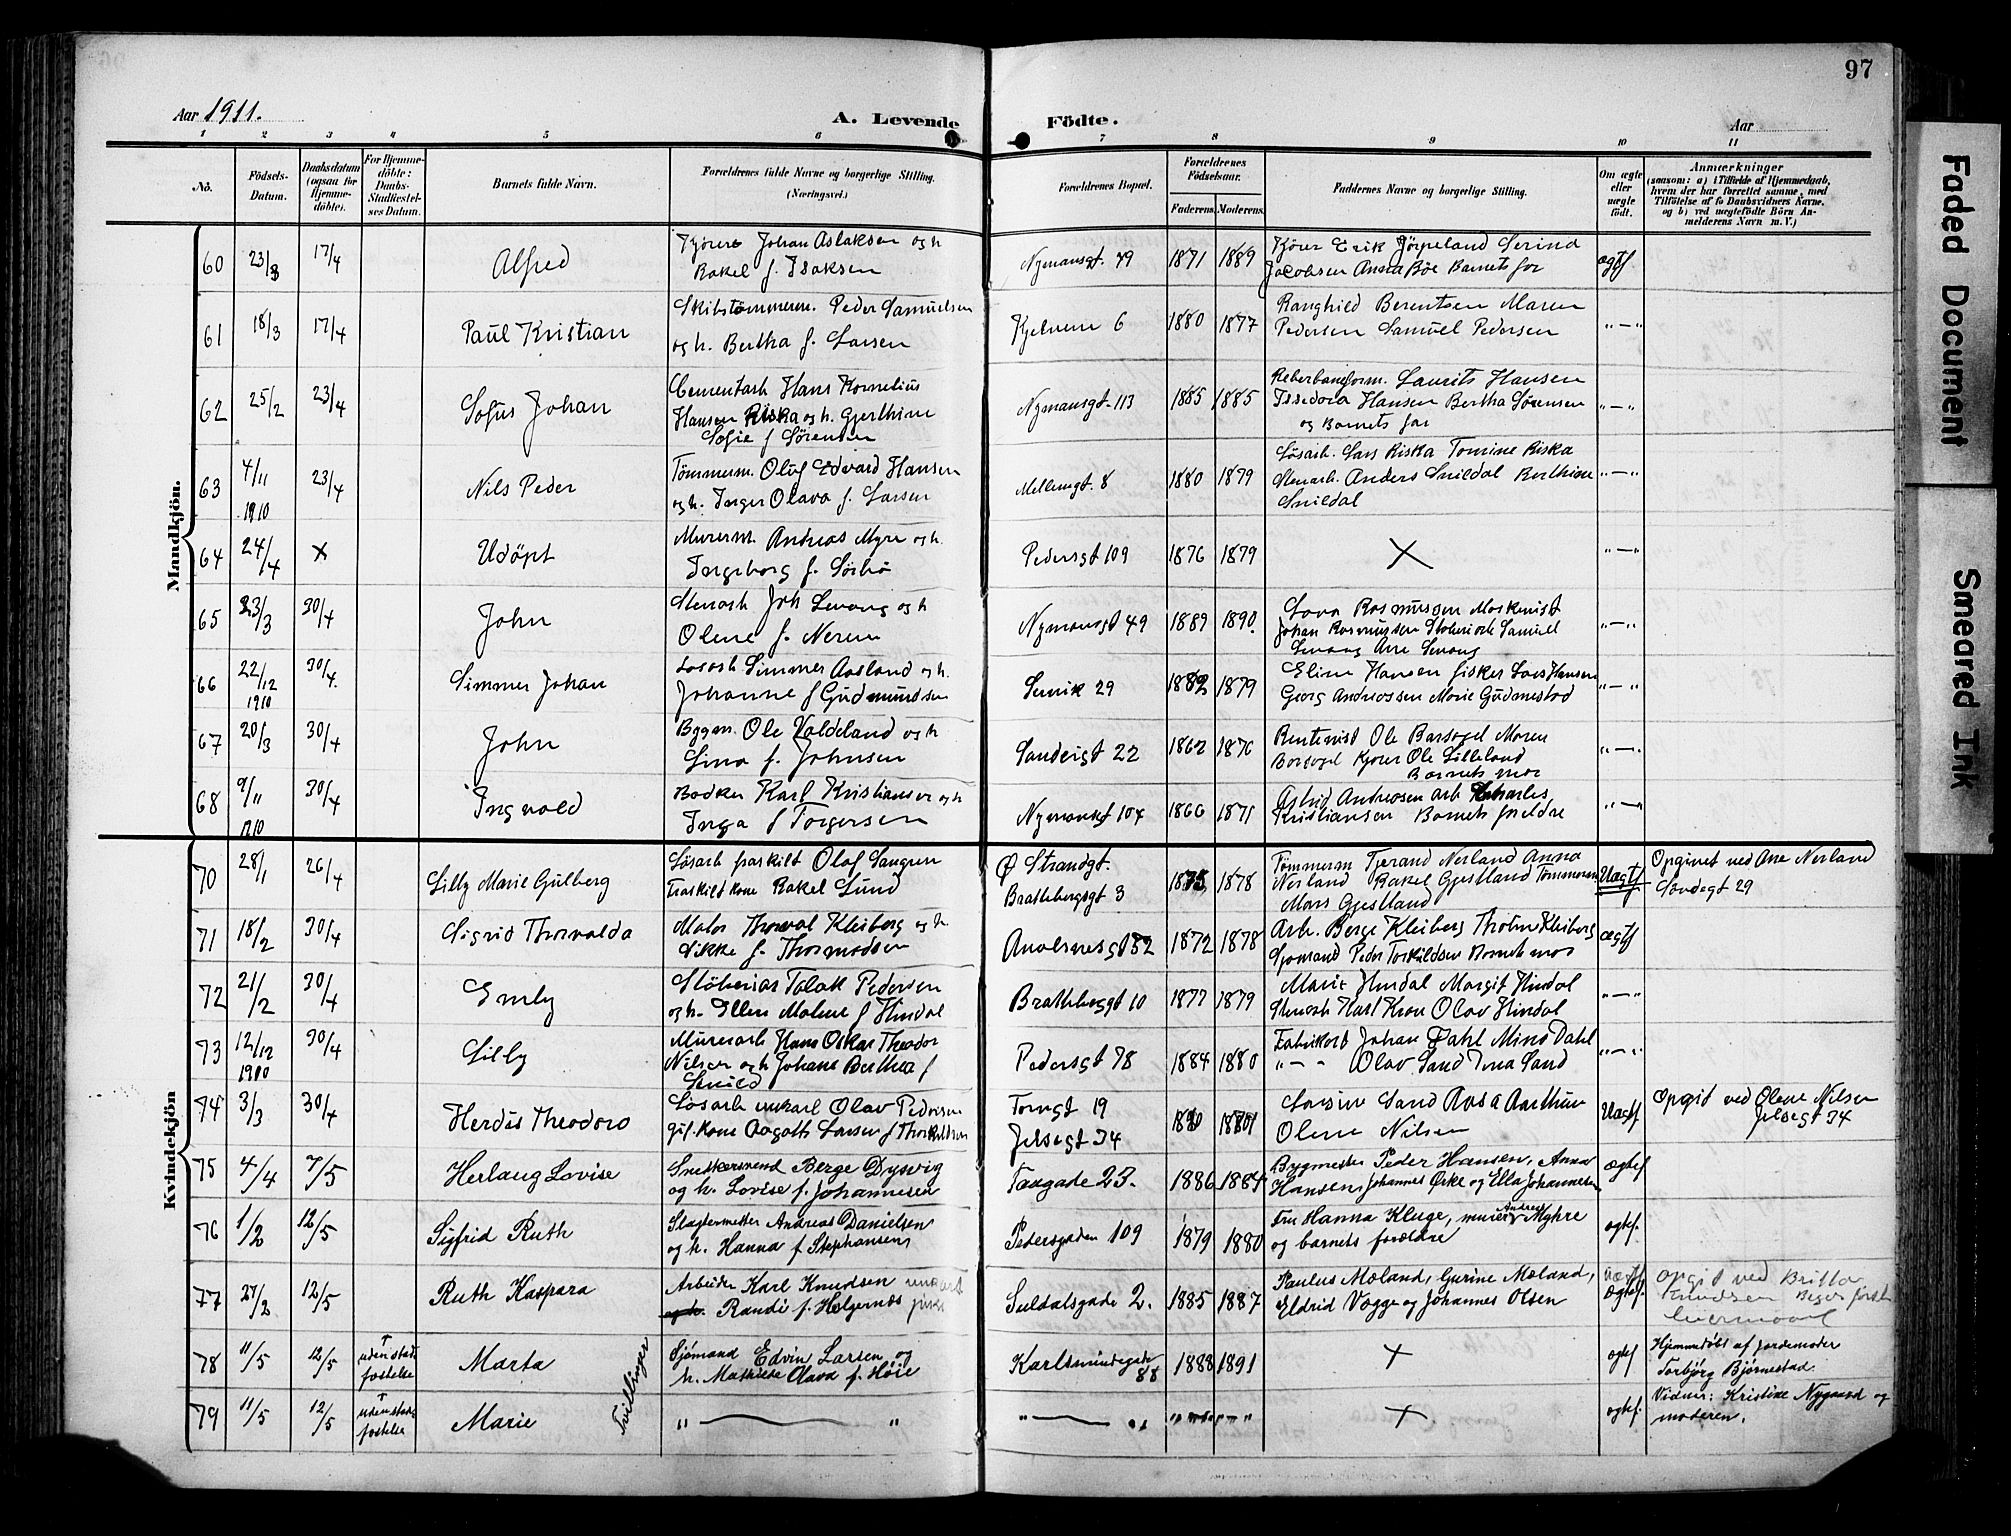 97
Aar 1911.
A. Levende Födte.
Aar
1 2 3 4 5 6 7 8 9 10 11
No.
Födsels-Datum.
Daabsdatum (ogsaa for Hjemmedöbte).
For Hjemmedöbte: Daabs-Stadfæstelses Datum.
Barnets fulde Navn.
Forældrenes fulde Navne og borgerlige Stilling. (Næringsvei.)
Forældrenes Bopæl.
Forældrenes Födselsaar.
Faderens. Moderens.
Faddernes Navne og borgerlige Stilling.
Om ægte eller uægte født.
Anmærkninger
(saasom: a) i Tilfælde af Hjemmedaab,
hvem der har forrettet samme, med
Tilföielse af to Daabsvidners Navne,
og b) ved uægtefödte Börn Anmelderens Navn m. V.)
Mandkjön.
60 23/3 17/4 Alfred
Kjører Johan Aslaksen og h
Rakel f. Isaksen
Nymansgt. 49 1871 1889
Kjører Erik Jørpeland Serina
Jacobsen Anna Bøe Barnets far
ægtf
61 18/3 17/4 Paul Kristian
Skibstømmerm. Peder Samuelsen
og h. Bertha f. Larsen
Kjelvene 6 1880 1877
Ranghild Berentsen Maren
Pedersen Samuel Pedersen
" — "
62 25/2 23/4 Sofus Johan
Cementarb Hans Kornelius
Hansen Riska og h. Gjerthine
Sofie f Sørensen
Nymansgt. 113 1885 1885
Reberbaneform. Laurits Hansen
Issidora Hansen Bertha Sørensen
og Barnets far
" — "
63 4/11 1910 23/4 Nils Peder
Tømmerm. Oluf Edvard Hansen
og h. Inger Olava f. Larsen
Mellemgt. 8 1880 1879
Løsarb. Lars Riska Tomine Riska
Stenarb. Anders Snildal Berthine
Snildal
" — "
64 24/4 x Udöpt
Murerm. Andreas Myre og h.
Ingeborg f. Sörbö
Pedersgt 109 1876 1879
X
" — "
65 23/3 30/4 John
Stenarb Joh Levang og h
Olene f. Nerem
Nymansgt 49 1889 1890.
Lava Rasmussen Maskinist
Johan Rasmussen Samuel
Levang Levang
" — "
66 22/12 1910 30/4. Simmer Johan
Løsarb Simmer Aasland og h.
Johanne f Gudmundsen
Lervik 29 1882 1879
Eline Hansen fisker Lars Hansen
Georg Andreassen Marie Gudmestad
" — "
67 20/3 30/4 John
Bygm. Ole Valdeland og h
Lina f. Johnsen
Sandeigt 22 1862 1870
Rentenist Ole Maren
Kjører Ole Lilleland
Barnets mor
" — "
68 9/11 1910 30/4 Ingvald
Bødker Karl Kristiansen og h
Inga f Torgersen
Nymansgt 104 1866 1871
Astrid Andreasen arb Charles
Kristiansen Barnets foreldre
" — "
Kvindekjön
70 28/1 26/4 Lilly Marie Gulberg
Løsarb fraskilt Olaf
Fraskilt kone Rakel Lund
Ø Strandgt.
Bratteborgsgt 3 1878
Tømmerm Tjerand Nerland Anna
Nerland Rakel Gjestland Tømmerm
Gjestland
Uægtf
Opgivet ved Nerland
29
71 18/2 30/4 Sigrid Thorvalda
Maler Thorval Kleiberg og h
Sikke f. Thormodsen
82 1872 1878
Arb. Berge Kleiberg Kleiberg
Sjømand Peder Torkildsen Barnets mor
ægtf
72 21/2 30/4 Emly
Stöberiarb Tolak Pedersen
og h. Ellen Malene f Hindal
10 1877 1879
Marie Hindal Margit Hindal
Stenarb Karl Olav Hindal
" — "
73 12/12 1910 30/4 Lilly
Murerarb Hans Oskar Theodor
Nilsen og h Johane Berthea f
Snild
Pedersgt 78 1884 1880
Johan Dahl Mina Dahl
" — — Olav Sand Tona Sand
" — "
74 3/3 30/4 Herdis Theodora
Løsarb unkarl Olav Pedersen
gift Kone Aagoth Larsen f Thorkildsen
19
Jelsegt 34
Sand Rosa Aarthun
Olene Nilsen
Uægtf
Opgit ved Olene Nilsen
Jelsegt 34
75 4/4 7/5 Herlaug Lovise
Snedkersvend Berge Dysvig
og h. Lovise f. Johannesen
Tangade 23. 1886 1884
Bygmester Peder Hansen, Anna
Hansen, Johannes Ørke og Ella Johannesen
ægtef
76 1/2 12/5 Sigfrid Ruth
Slagtermester Andreas Danielsen
og h. Hanna f Stephansen,
Pedersgaden 109 1879 1880
Fru Hanna Kluge, murer Andreas Myhre
og barnets forældre
ægtef.
77 27/2 12/5 Ruth Kaspara
Arbeider Karl Knudsen
og h. Randi f. Helgernes pike
Suldalsgade 2. 1885 1887
Paulus Mæland, Gurine Mæland,
Eldrid Vogge og Johannes Olsen
uægtf
ægtef.
Opgit ved Britta
Knudsen
78 11/5 12/5
† uden stadfæstelse
Marta
Tvillinger
Sjömand Edvin Larsen og
h. Mathilde Olava f. Høie
Karlsmindegade 88 1888 1891
X
ægtef
Hjemmedöbt af jordemoder
Torbjörg Bjørnestad.
79 11/5 12/5
† uden stadfæstelse
Marie
" — "
" — " " — " " — "
X
ægtef.
Vidner: Kristine Nygaard og
moderen.
Faded Document
Smeared Ink